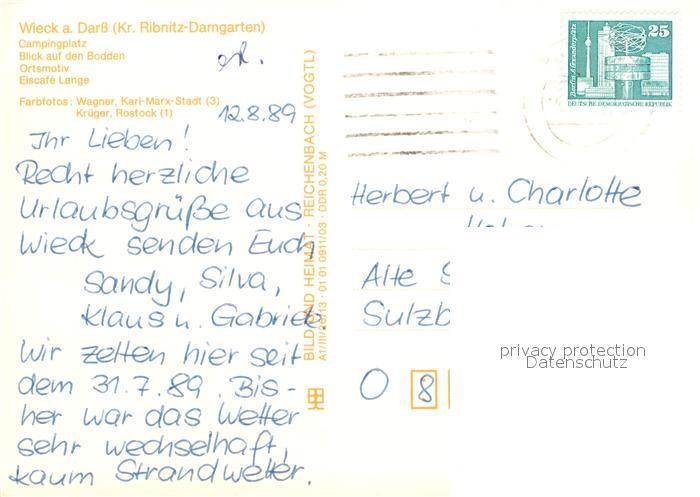 Wieck a. Darß (Kr. Ribnitz-Damgarten)
Campingplatz
Blick auf den Bodden
Ortsmotiv
Eiscafé Lange
Farbfotos: Wagner, Karl-Marx-Stadt (3)
Krüger, Rostock (1)
12.8.89
Ihr Lieben!
Recht herzliche
Urlaubsgrüße aus
Wieck senden Euch
Sandy, Silva,
Klaus u. Gabriele.
Wir zelten hier seit
dem 31.7.89. Bis-
her war das Wetter
sehr wechselhaft,
kaum Strandwetter.
BILD UND HEIMAT · REICHENBACH (VOGTL)
A1/III/26/13 · 01 01 0911/03 · DDR 0,20 M
Berlin, Alexanderplatz
25
DEUTSCHE DEMOKRATISCHE REPUBLIK
Herbert u. Charlotte
Alte S
Sulzb
O 8
privacy protection
Datenschutz